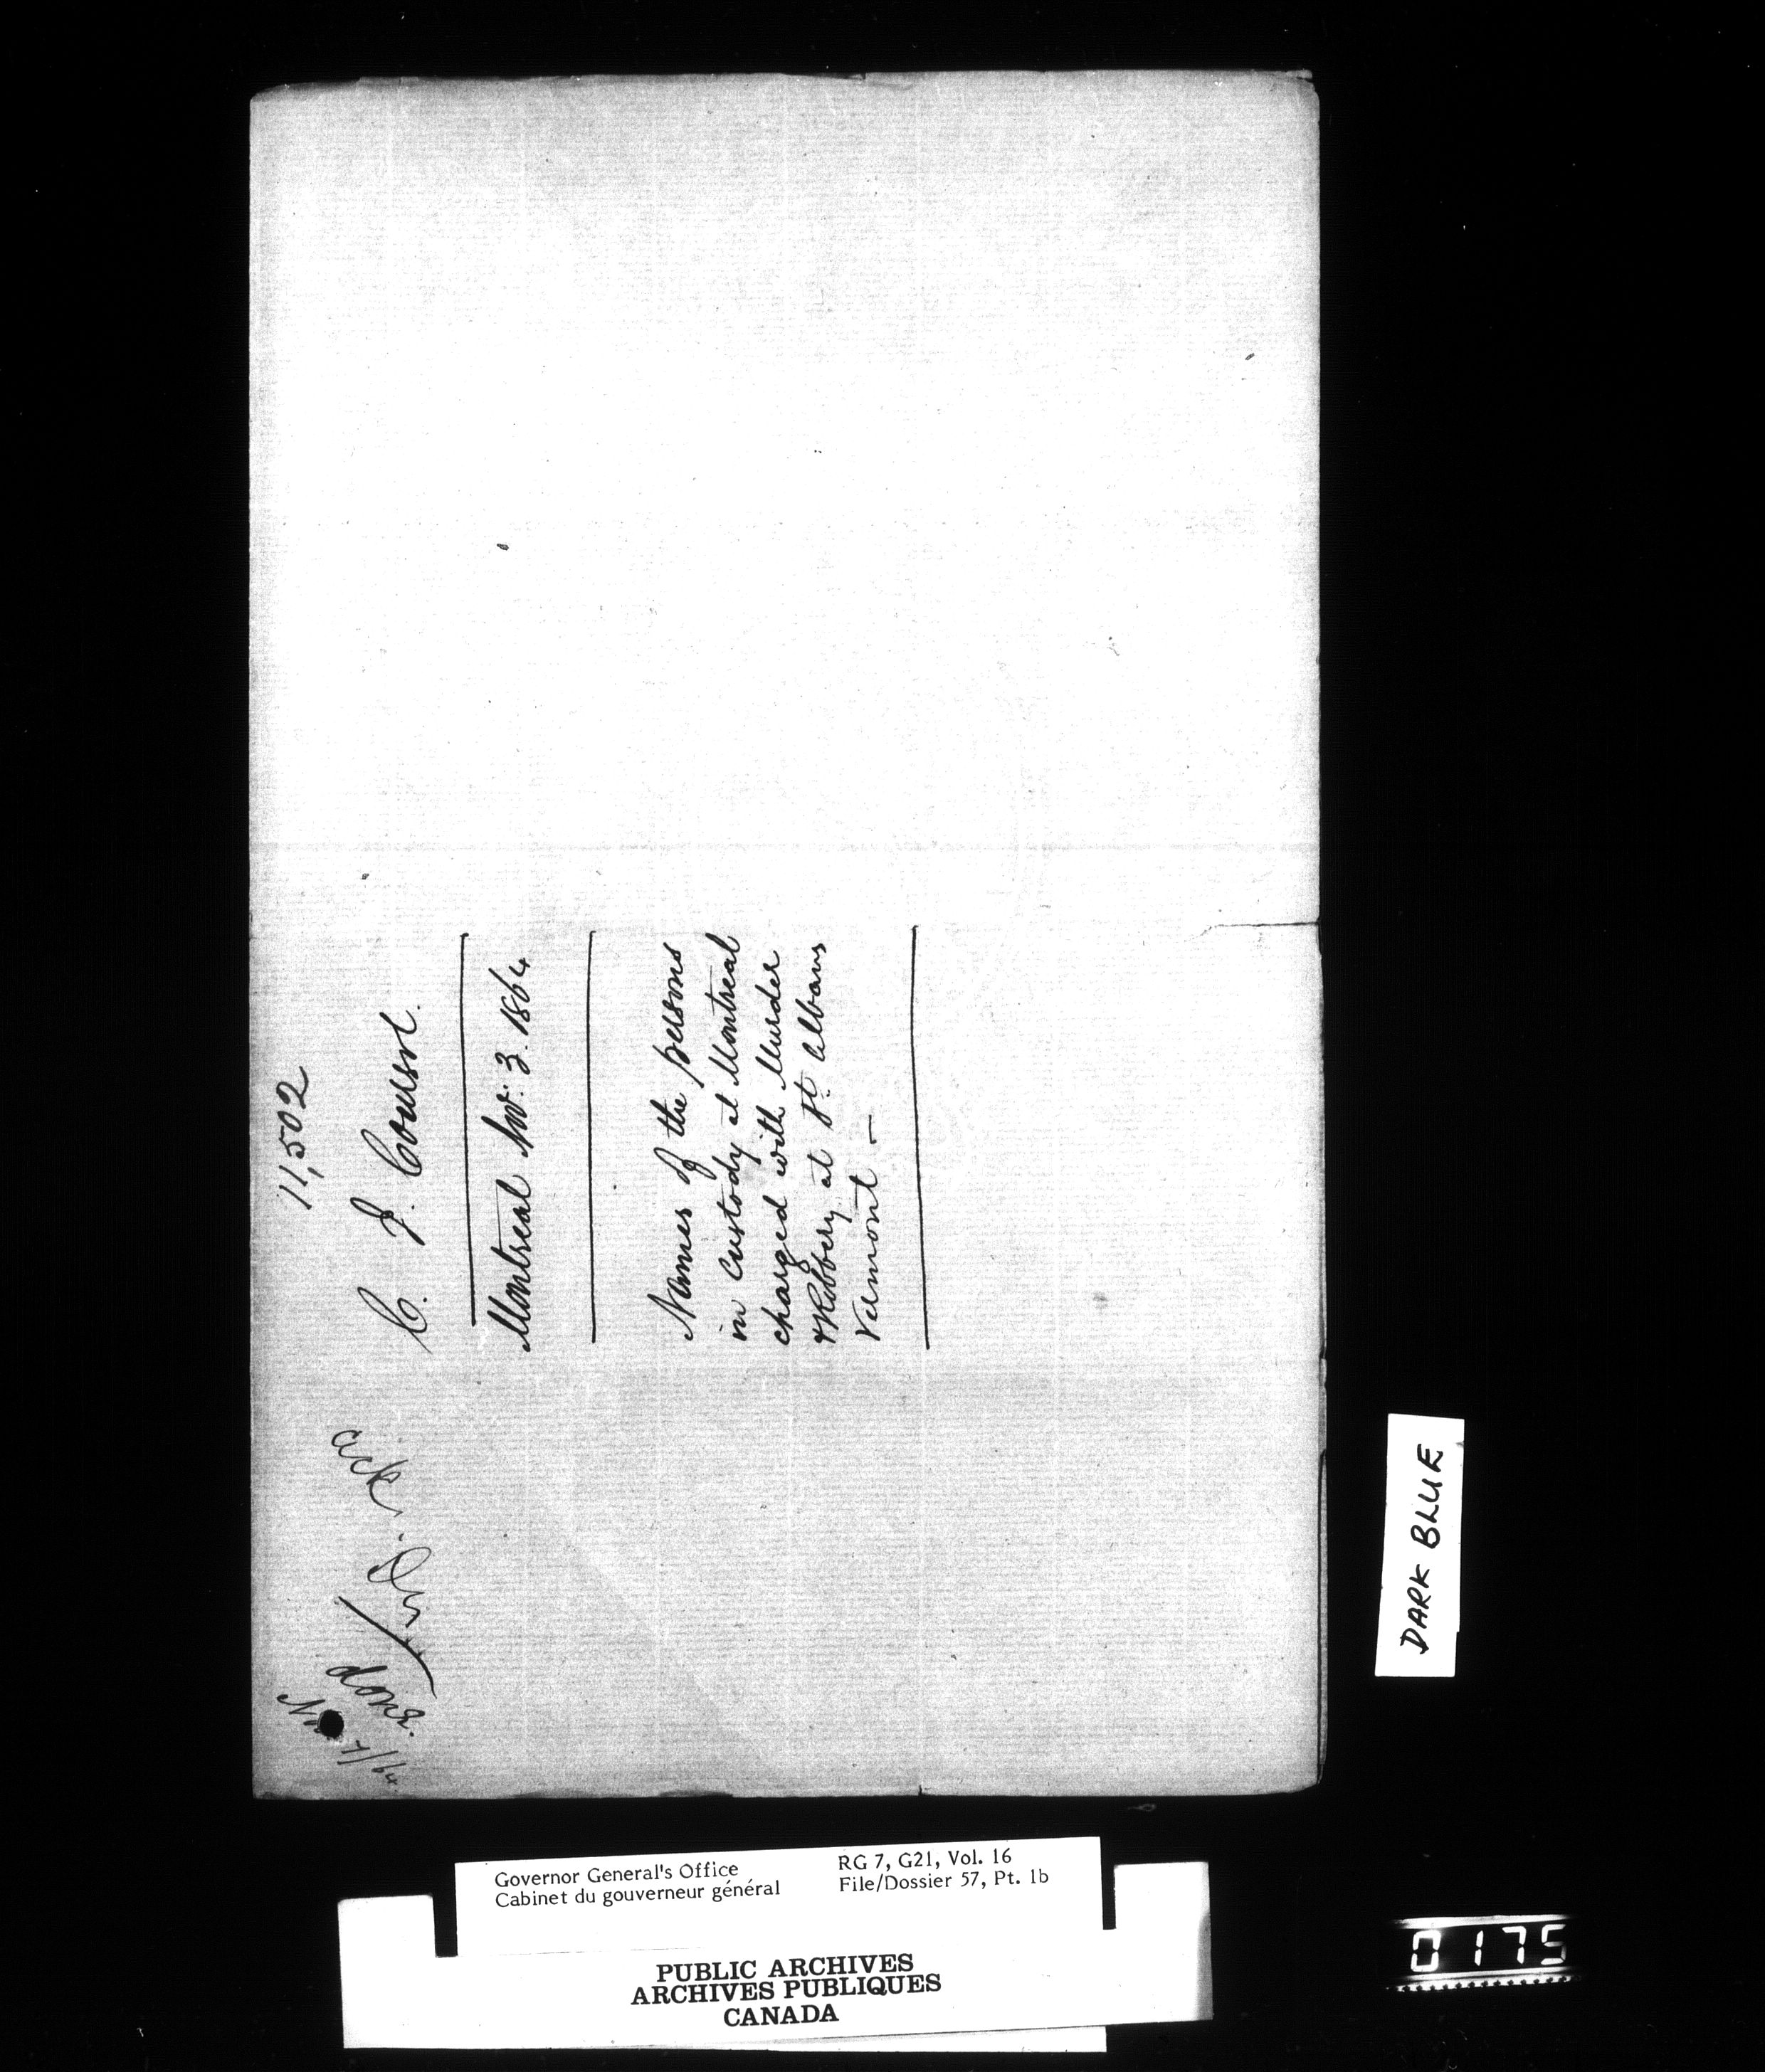 11,502
C. J. Coursol.
Montreal Nov: 3. 1864
Names of the persons
in Custody at Montreal
charged with Murder
& Robbery at St. Albans
Vermont –
ack
done.
7/64
DARK BLUE
Governor General's Office
Cabinet du gouverneur général
RG 7, G21, Vol. 16
File/Dossier 57, Pt. 1b
PUBLIC ARCHIVES
ARCHIVES PUBLIQUES
CANADA
0175